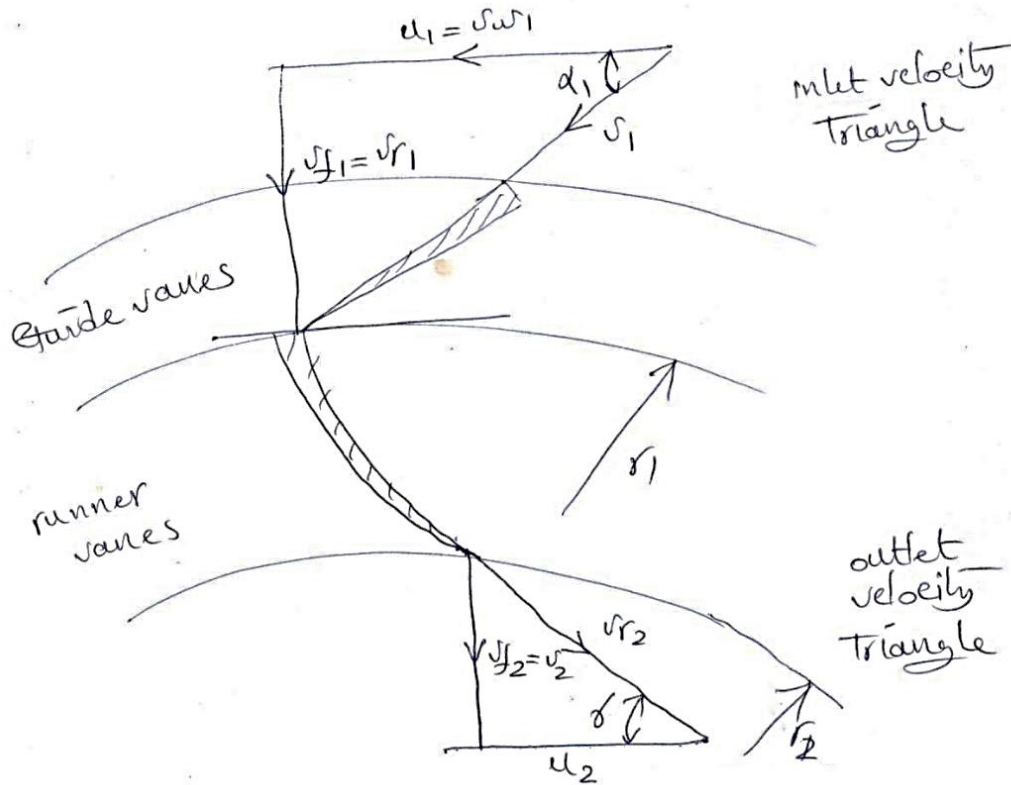 u1 = vw1
inlet velocity
Triangle
α1
v1
vf1 = vr1
Guide vanes
r1
runner
vanes
outlet
velocity
Triangle
vr2
vf2 = v2
γ
r2
u2